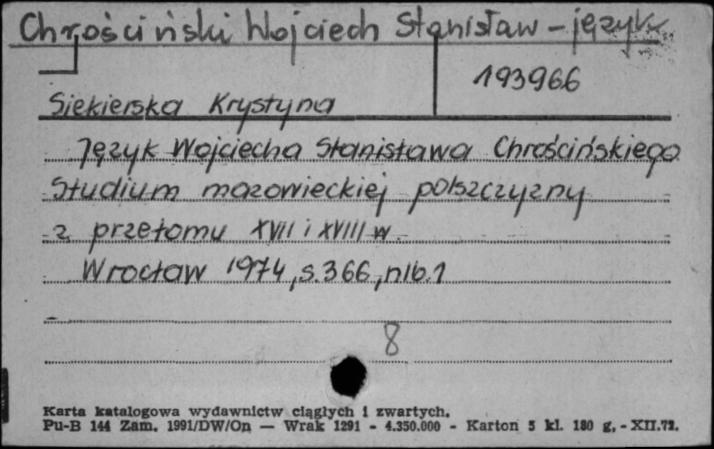 Chrościński Wojciech Stanisław – język
193966
Siekierska Krystyna
Język Wojciecha Stanisława Chrościńskiego
Studium mazowieckiej polszczyzny
z przełomu XVII i XVIII w.
Wrocław 1974, s. 366, nlb. 1
8
Karta katalogowa wydawnictw ciągłych i zwartych.
Pu-B 144 Zam. 1991/DW/On — Wrak 1291 - 4.350.000 - Karton 5 kl. 180 g. - XII.72.